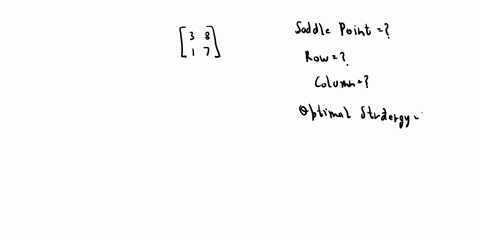 [3 8
1 7]
Saddle Point =?
Row =?
Column =?
Optimal Stratergy =